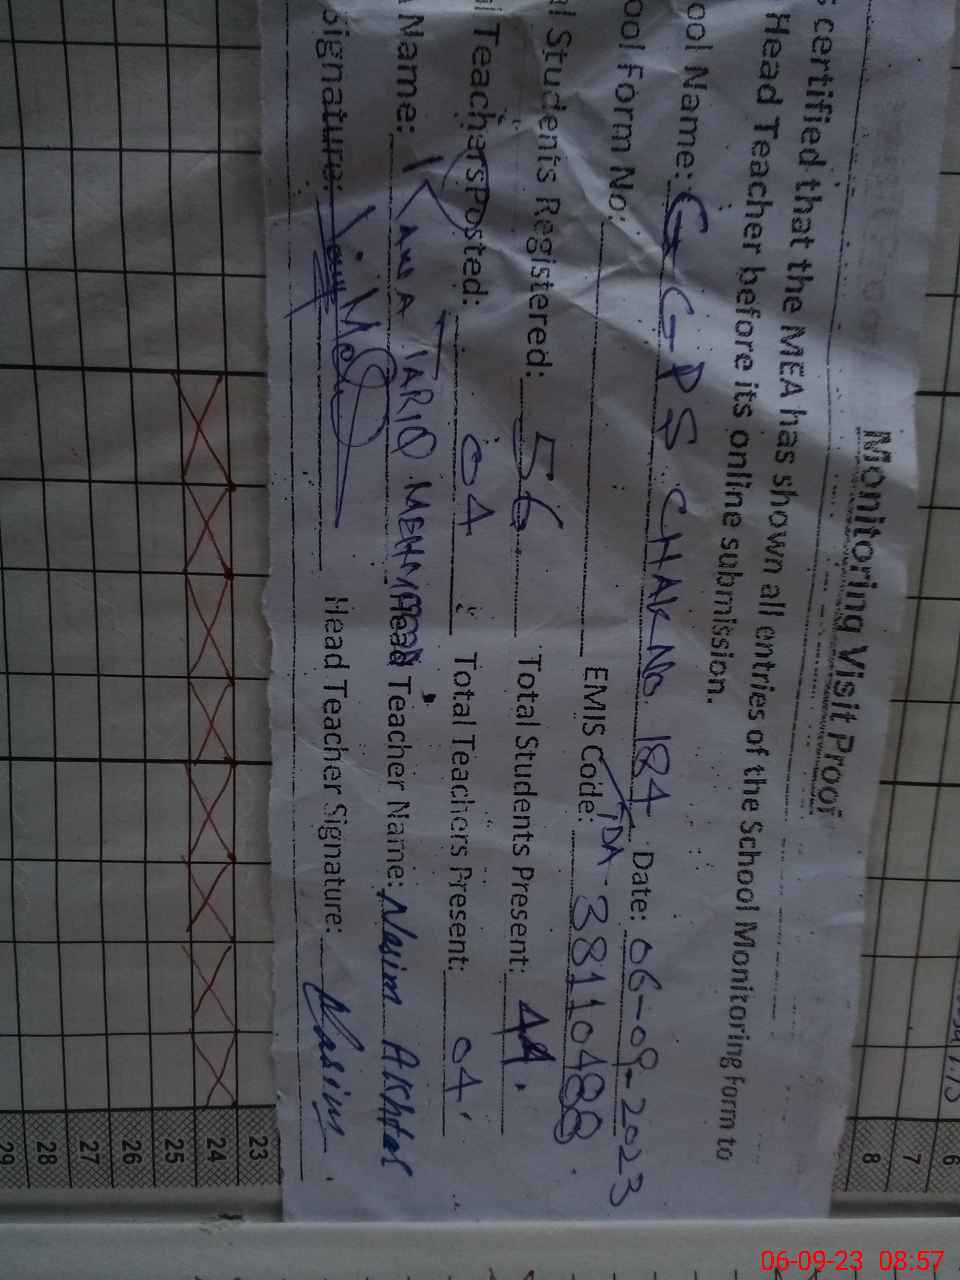 Monitoring Visit Proof
certified that the MEA has shown all entries of the School Monitoring Form to
Head Teacher before its online submission.
ool Name: GGPS CHAK NO 184 /TDA Date: 06-09-2023
ool Form No: EMIS Code: 38110488
l Students Registered: 56 Total Students Present: 44
l Teachers Posted: 04 Total Teachers Present: 04
Name: RANA TARIQ MEHMOOD Head Teacher Name: Nasim Akhtar
Signature: Head Teacher Signature: Nasim
6
7
8
23
24
25
26
27
28
29
06-09-23 08:57